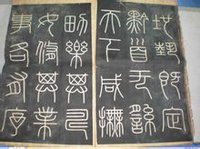 地勢既定
黔首无繇
天下咸撫
男樂其疇
女修其業
事各有序